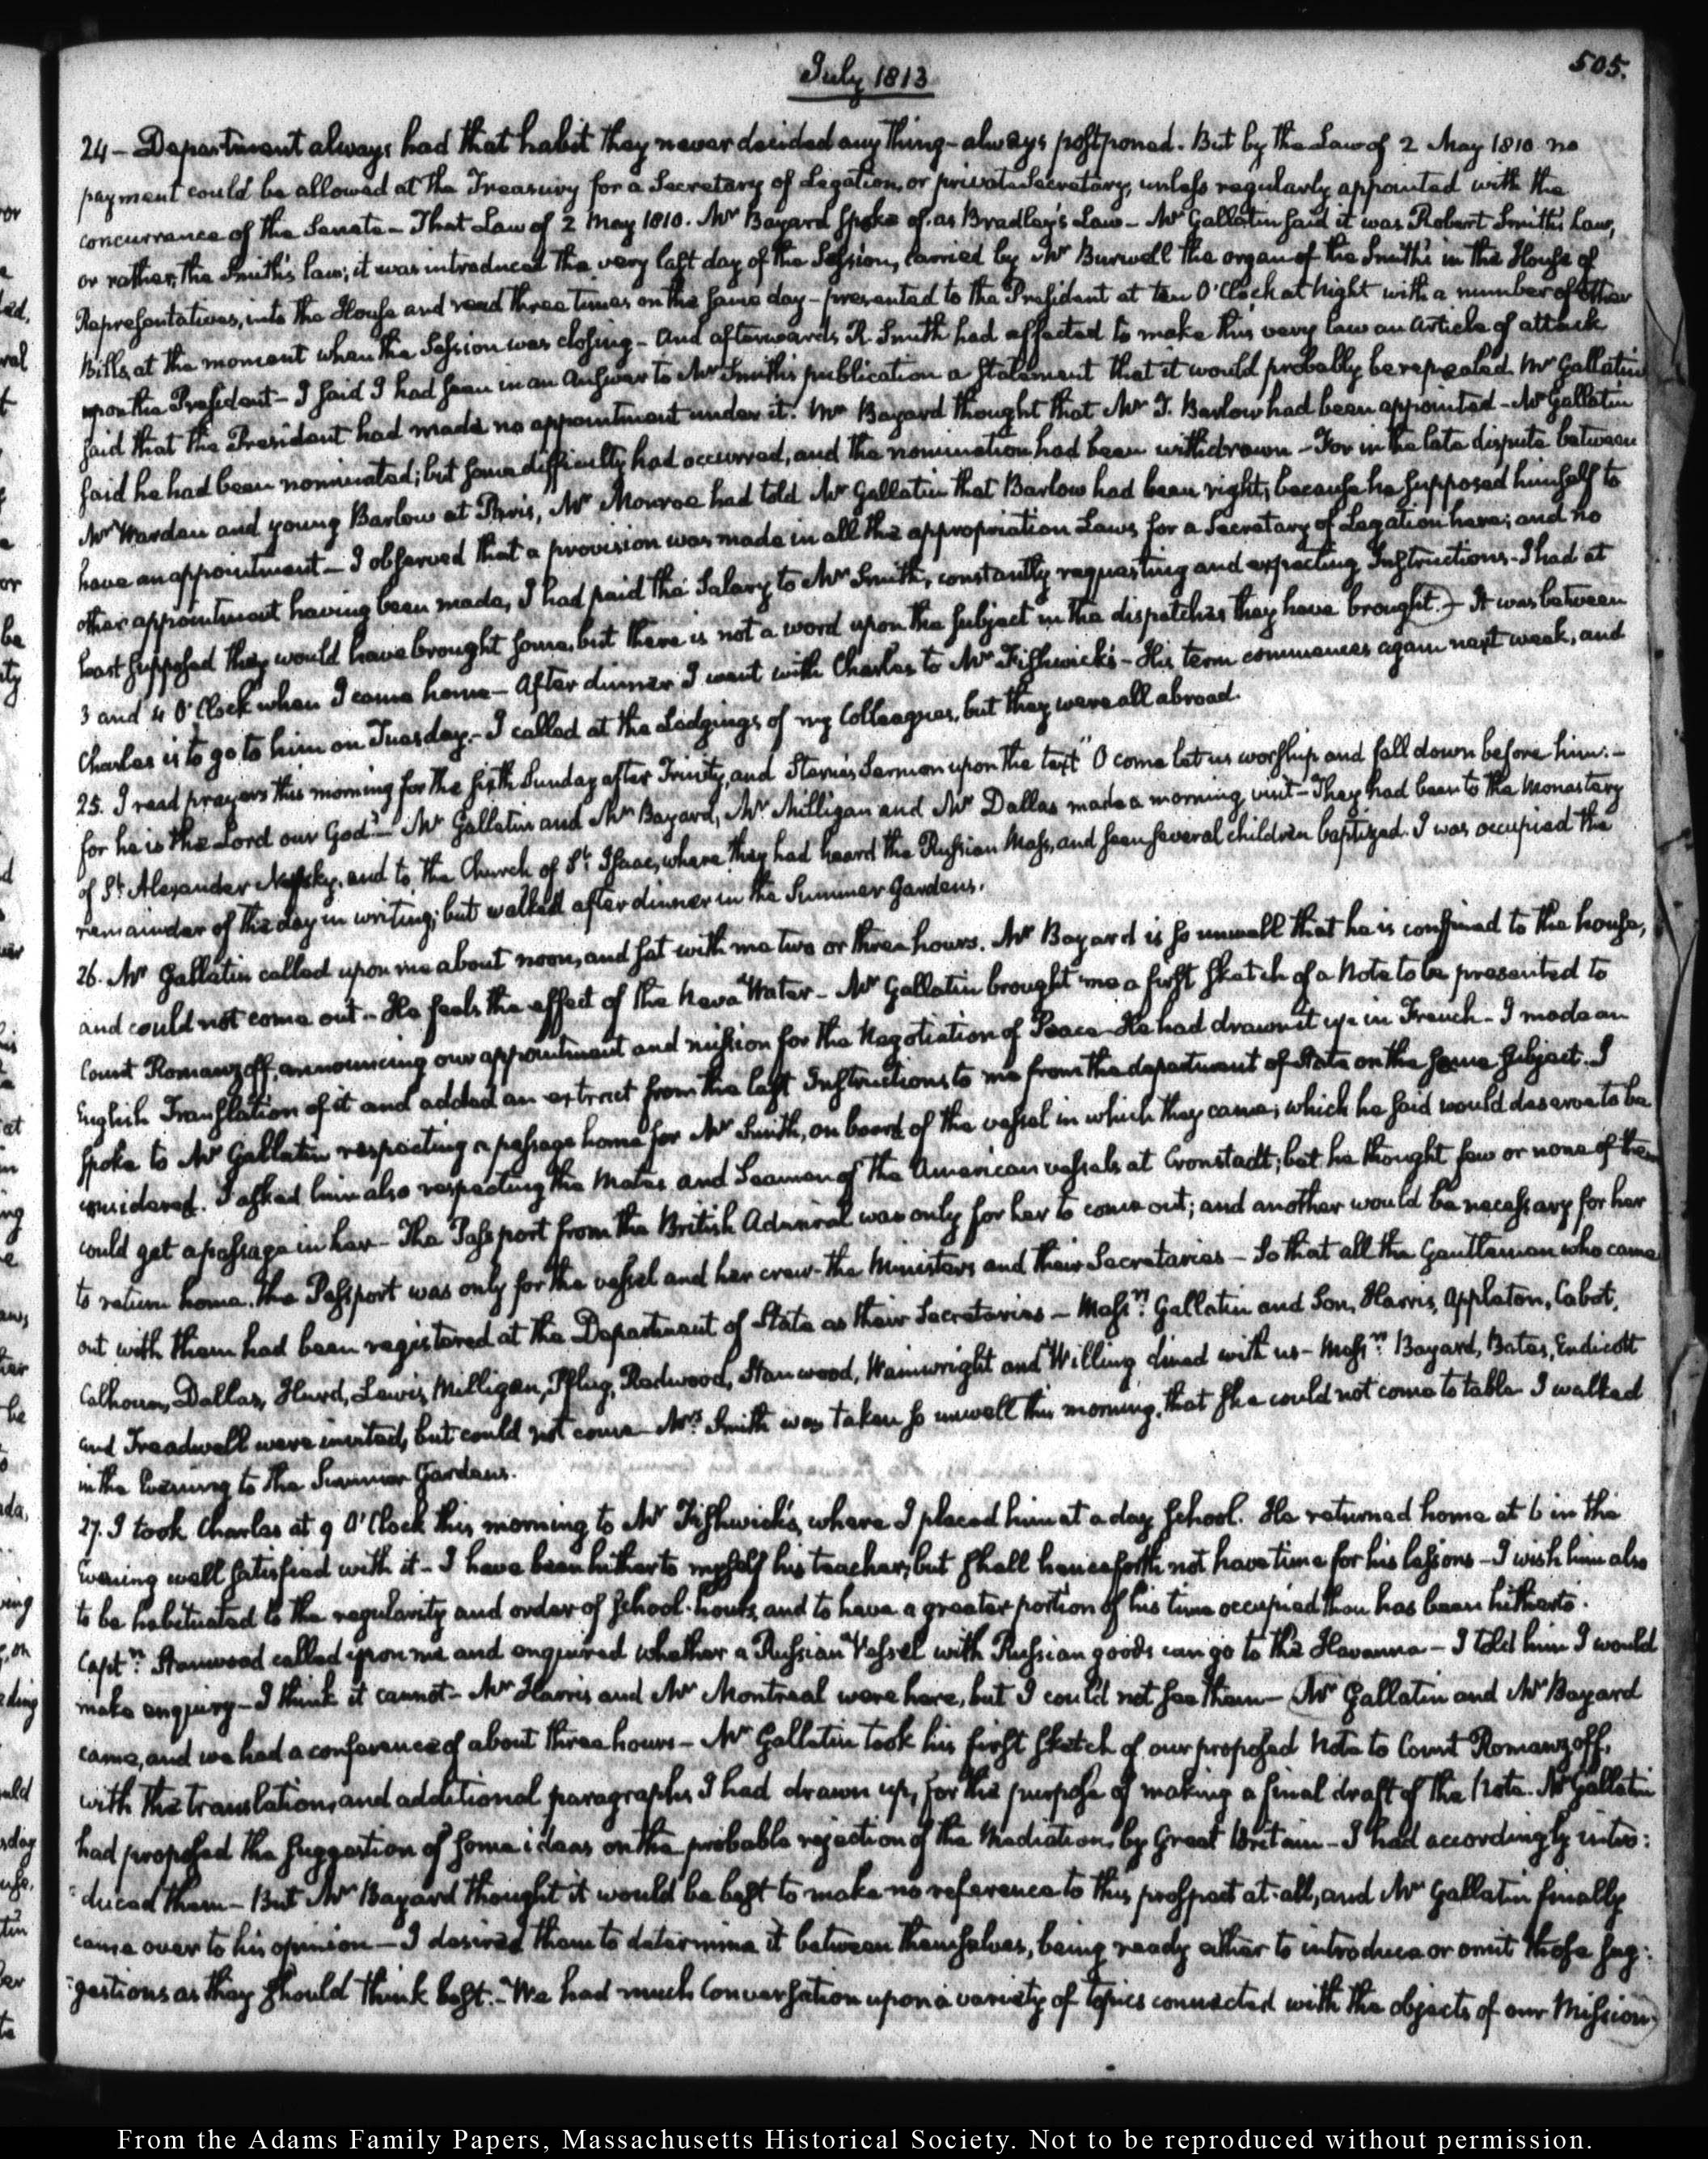 505.
July 1813
24 — Department always had that habit they never decided any thing — always postponed. But by the Law of 2 May 1810 no
payment could be allowed at the Treasury for a Secretary of Legation, or private Secretary, unless regularly appointed with the
concurrence of the Senate — That Law of 2 May 1810. Mr Bayard spoke of as Bradley's Law — Mr Gallatin said it was Robert Smith's Law,
or rather, the Smith's law; it was introduced the very last day of the Session, carried by Mr Burwell the organ of the Smith's in the House of
Representatives, into the House and read three times on the same day — presented to the President at ten O'Clock at Night with a number of other
Bills, at the moment when the Session was closing — And afterwards R. Smith had affected to make this very law an Article of attack
upon the President — I said I had seen in an Answer to Mr Smith's publication a Statement that it would probably be repealed. Mr Gallatin
said that the President had made no appointment under it. Mr Bayard thought that Mr T. Barlow had been appointed — Mr Gallatin
said he had been nominated; but some difficulty had occurred, and the nomination had been withdrawn — For in the late dispute between
Mr Warden and young Barlow at Paris, Mr Monroe had told Mr Gallatin that Barlow had been right; because he supposed himself to
have an appointment — I observed that a provision was made in all the appropriation Laws for a Secretary of Legation here; and no
other appointment having been made, I had paid the Salary to Mr Smith, constantly requesting and expecting Instructions — I had at
least supposed they would have brought some, but there is not a word upon the subject in the dispatches they have brought. — It was between
3 and 4 O'Clock when I came home — After dinner I went with Charles to Mr Fishwick's — His term commences again next week, and
Charles is to go to him on Tuesday. — I called at the Lodgings of my Colleagues, but they were all abroad.
25. I read prayers this morning for the sixth Sunday after Trinity, and Sterne's Sermon upon the text "O come let us worship and fall down before him: —
for he is the Lord our God." — Mr Gallatin and Mr Bayard, Mr Milligan and Mr Dallas made a morning visit — They had been to the Monastery
of St Alexander Nefsky, and to the Church of St Isaac, where they had heard the Russian Mass, and seen several children baptized. I was occupied the
remainder of the day in writing; but walked after dinner in the Summer Gardens.
26. Mr Gallatin called upon me about noon, and sat with me two or three hours. Mr Bayard is so unwell that he is confined to the house,
and could not come out — He feels the effect of the Neva Water — Mr Gallatin brought me a first sketch of a Note to be presented to
Count Romanzoff, announcing our appointment and mission for the Negotiation of Peace — He had drawn it up in French — I made an
English Translation of it and added an extract from the last Instructions to me from the department of State on the same subject. I
spoke to Mr Gallatin respecting a passage home for Mr Smith, on board of the vessel in which they came; which he said would deserve to be
considered. I asked him also respecting the Mates and Seamen of the American vessels at Cronstadt; but he thought few or none of them
could get a passage in her — The Passport from the British Admiral was only for her to come out; and another would be necessary for her
to return home. The Passport was only for the vessel and her crew — the Ministers and their Secretaries — So that all the Gentlemen who came
out with them had been registered at the Department of State as their Secretaries — Messrs Gallatin and Son, Harris, Appleton, Cabot,
Calhoun, Dallas, Hurd, Lewis, Milligan, Pflug, Redwood, Stanwood, Wainwright and Willing dined with us — Messrs Bayard, Bates, Endicott
and Treadwell were invited, but could not come — Mrs Smith was taken so unwell this morning, that she could not come to table. I walked
in the Evening to the Summer Gardens.
27. I took Charles at 9 O'Clock this morning to Mr Fishwick's, where I placed him at a day school. He returned home at 6 in the
Evening well satisfied with it — I have been hitherto myself his teacher, but shall henceforth not have time for his lessons — I wish him also
to be habituated to the regularity and order of school-hours, and to have a greater portion of his time occupied than has been hitherto.
Captn Stanwood called upon me and enquired whether a Russian Vessel with Russian goods can go to the Havanna — I told him I would
make enquiry — I think it cannot — Mr Harris and Mr Montreal were here, but I could not see them — Mr Gallatin and Mr Bayard
came, and we had a conference of about three hours — Mr Gallatin took his first sketch of our proposed Note to Count Romanzoff,
with the translation, and additional paragraphs I had drawn up, for the purpose of making a final draft of the Note. Mr Gallatin
had proposed the suggestion of some ideas on the probable rejection of the Mediation, by Great Britain — I had accordingly intro:
:duced them — But Mr Bayard thought it would be best to make no reference to this prospect at all, and Mr Gallatin finally
came over to his opinion — I desired them to determine it between themselves, being ready either to introduce or omit those sug:
:gestions as they should think best. — We had much Conversation upon a variety of topics connected with the objects of our Mission.
From the Adams Family Papers, Massachusetts Historical Society. Not to be reproduced without permission.